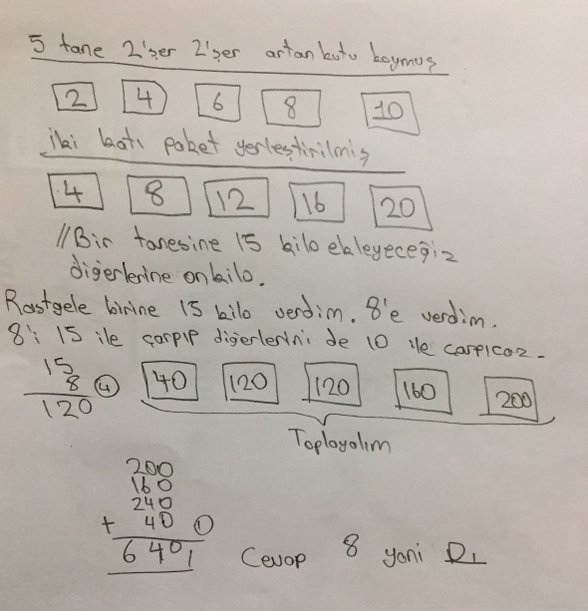 5 tane 2'şer 2'şer artan kutu koymuş
2 4 6 8 10
iki katı paket yerleştirilmiş
4 8 12 16 20
//Bir tanesine 15 kilo ekleyeceğiz
diğerlerine on kilo.
Rastgele birine 15 kilo verdim. 8'e verdim.
8'i 15 ile çarpıp diğerlerini de 10 ile carpıcaz.
15
8 4
120
40 120 120 160 200
Toplayalım
200
160
240
+ 40 1
640,
Cevap 8 yani D1